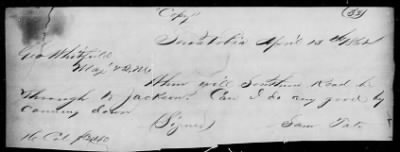 "Copy" (33)
Senatobia April 13th 1862
Geo Whitfield
Maj & Q.M.
When will Southern Road be
through to Jackson. Can I do any good by
coming down
(Signed) Sam Tate